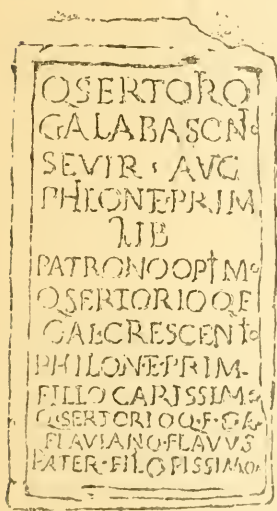 Q SERTORO
GAL ABASCN°
SEVIR · AVG
PHILON·E·PRIM
LIB
PATRONO OPTM°
Q SERTORIO Q F
GAL CRESCENT°
PHILON·E·PRIM·
FILLO CARISSIM°
Q·SERTORIO Q·F·GA
FLAVIANO·FLAVVS
PATER·FILO PISSIMO·